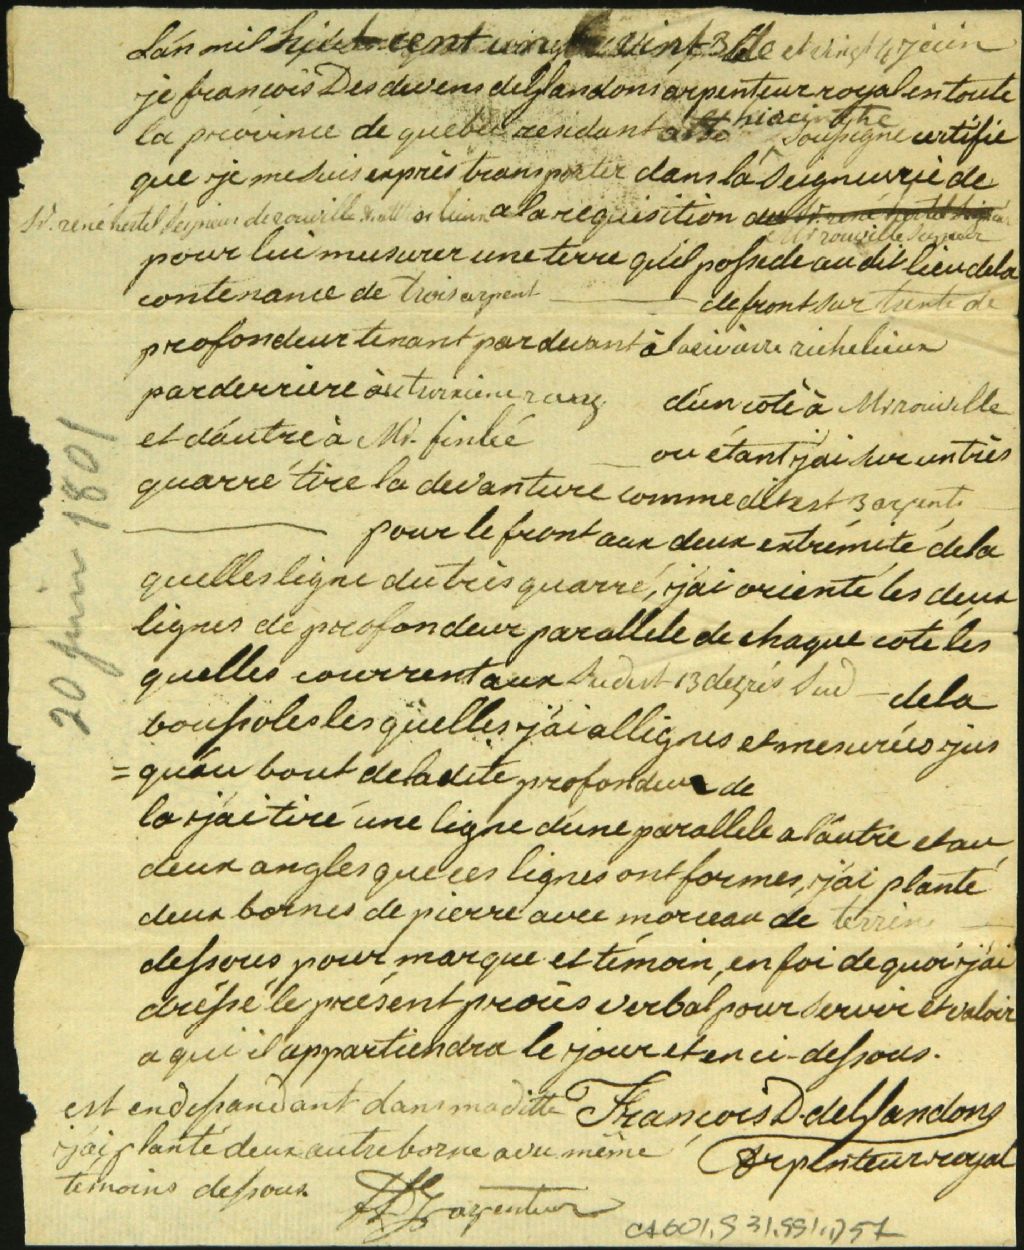 Lan mil huit cent un le vint et vingt juin
je françois Desdevens de Glandons arpenteur royal en toute
la province de quebec residant a St hiacinthe soussigné certifie
que je me suis exprès transporter dans la Seigneurie de
Sr. rené hertel seigneur de rouville a la requisition du Sr. rené hertel
Mr rouville seigneur
pour lui mesurer une terre qu'il possede au dit lieu de la
contenance de trois arpent de front sur trente de
profondeur tenant par devant à la rivierre richelieux
par derriere au troisieme rang d'un coté à Mr rouville
et d'autre à Mr. finlée ou étant j'ai sur un très
quarré tire la devanture comme dit est 3 arpents
pour le front aux deux extrémité de la
quelles ligne du tres quarré, j'ai orienté les deux
lignes de profondeur parallele de chaque coté les
quelles courrent aux Sudest 13 degrés Sud de la
boussole les quelles j'ai allignes et mesurées jus
= qu'au bout de la dite profondeur de
la j'ai tiré une ligne d'une parallele a l'autre et au
deux angles que ces lignes ont formes, j'ai planté
deux bornes de pierre avec morceau de terrine
dessous pour marque et témoin, en foi de quoi j'ai
dréssé le présent procès verbal pour servir et valoir
a qui il appartiendra le jour et en ci-dessous.
est en dessandant dans ma ditte
François D. de Glandons
j'ai planté deux autre borne avec même
Arpenteur royal
temoins dessous
arpenteur
20 juin 1801
CA601,S31,SS1,D57